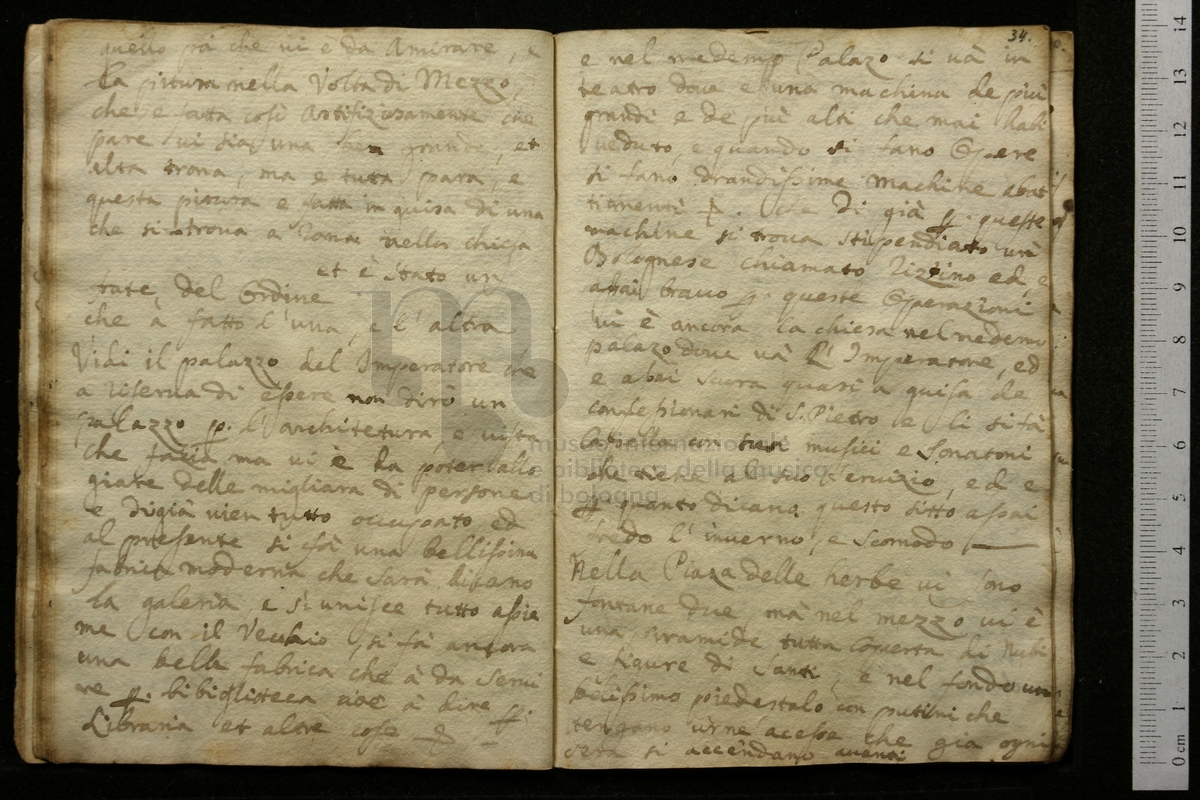 quello più che vi è da Amirare, e
la pitura nella Volta di Mezzo,
che e fatta così Artifiziosamente che
pare vi sia una grande, et
alta trona, ma e tutta para, e
questa pitura e fatta in guisa di una
che si trova a Roma nella chiesa
et è stato un
frate del Ordine
che à fatto l'una, e l'altra
Vidi il palazzo del Imperatore che
a riserva di essere non dirò un
palazzo p. l'architetura e vista
che facia ma vi è da poter allo
giare delle migliara di persone
e digià vien tutto occupato, ed
al presente si fà una bellissima
fabrica moderna che sarà dicano
la galeria, e si unisce tutto assie
me con il Vechio, si fà ancora
una bella fabrica che à da servi
re p. bibiglioteca cioè à dire
Libraria et altre cose
34.
e nel medemo Palazo si và in
teatro dove e una machina de più
grandi e de più alti che mai habi
veduto, e quando si fano Opere
si fano Grandissime machine abat
timenti. che di già p. queste
machine si trova stipendiato un
Bolognese chiamato Rizzino ed e
assai bravo p. queste Operazioni
vi è ancora la chiesa nel medemo
palazo dove và l'Imperatore, ed
e assai scura quasi a guisa de
confessionari di S. Pietro e li si fà
Capella con tutti musici e Sonatori
che tiene al suo Servizio, ed e
p. quanto dicano questo sitto assai
fredo l'inverno, e scomodo
Nella Piaza delle herbe vi sono
fontane due mà nel mezzo vi è
una Piramide tutta Coperta di Nubi
e figure di Santi, e nel fondo un
belissimo piedestalo con putini che
tengano urne accese che già ogni
sera si accendano aventi
museo internazionale
e biblioteca della musica
di bologna
0 cm 1 2 3 4 5 6 7 8 9 10 11 12 13 14